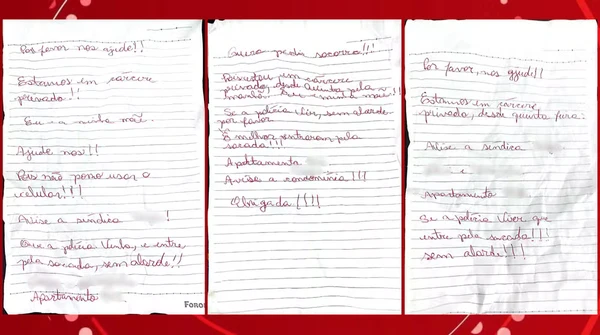 Por favor nos ajude!!
Estamos em carcere
privado!!
Eu e a minha mãe.
Ajude nos!!!
Pois não posso usar o
celular!!!!
Avise a síndica !
Que a polícia Venha, e entre
pela sacada, sem alarde!!
Apartamento
Foron
Quero pedir socorro!!!
em carcere
privado, desde Quinta pela
manhã. Eu e minha mãe!!
Se a polícia Vir, sem alarde
por favor
É melhor entrarem pela
sacada!!!
Apartamento
Avise a condomínio!!!
Obrigada!!!!
Por favor, nos ajude!!
Estamos em carcere
privado, desde quinta feira.
Avise a síndica
e
Apartamento
Se a polícia Viver que
entre pela sacada!!!
sem alarde!!!